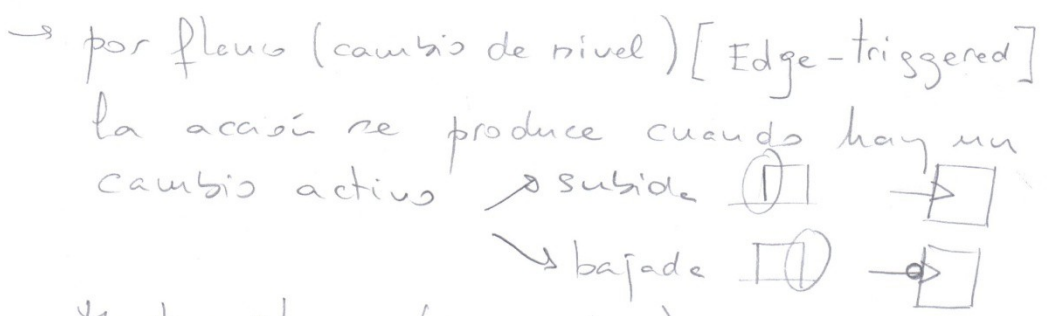 → por flanco (cambio de nivel) [Edge-triggered]
la acción se produce cuando hay un
cambio activo → subida
→ bajada